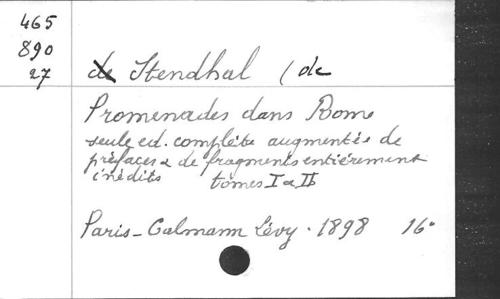 465
890
27
de Stendhal (de
Promenades dans Rome
seule ed. complète augmentée de
préfaces & de fragments entièrement
inédits tomes I & II
Paris - Calmann Lévy . 1898 16°